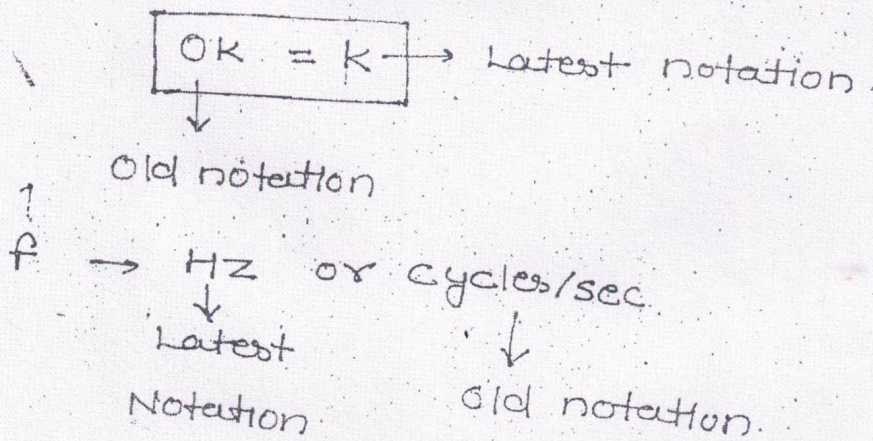 OK = K → Latest notation.
↓
Old notation
f → HZ or cycles/sec.
↓ ↓
Latest Old notation.
Notation